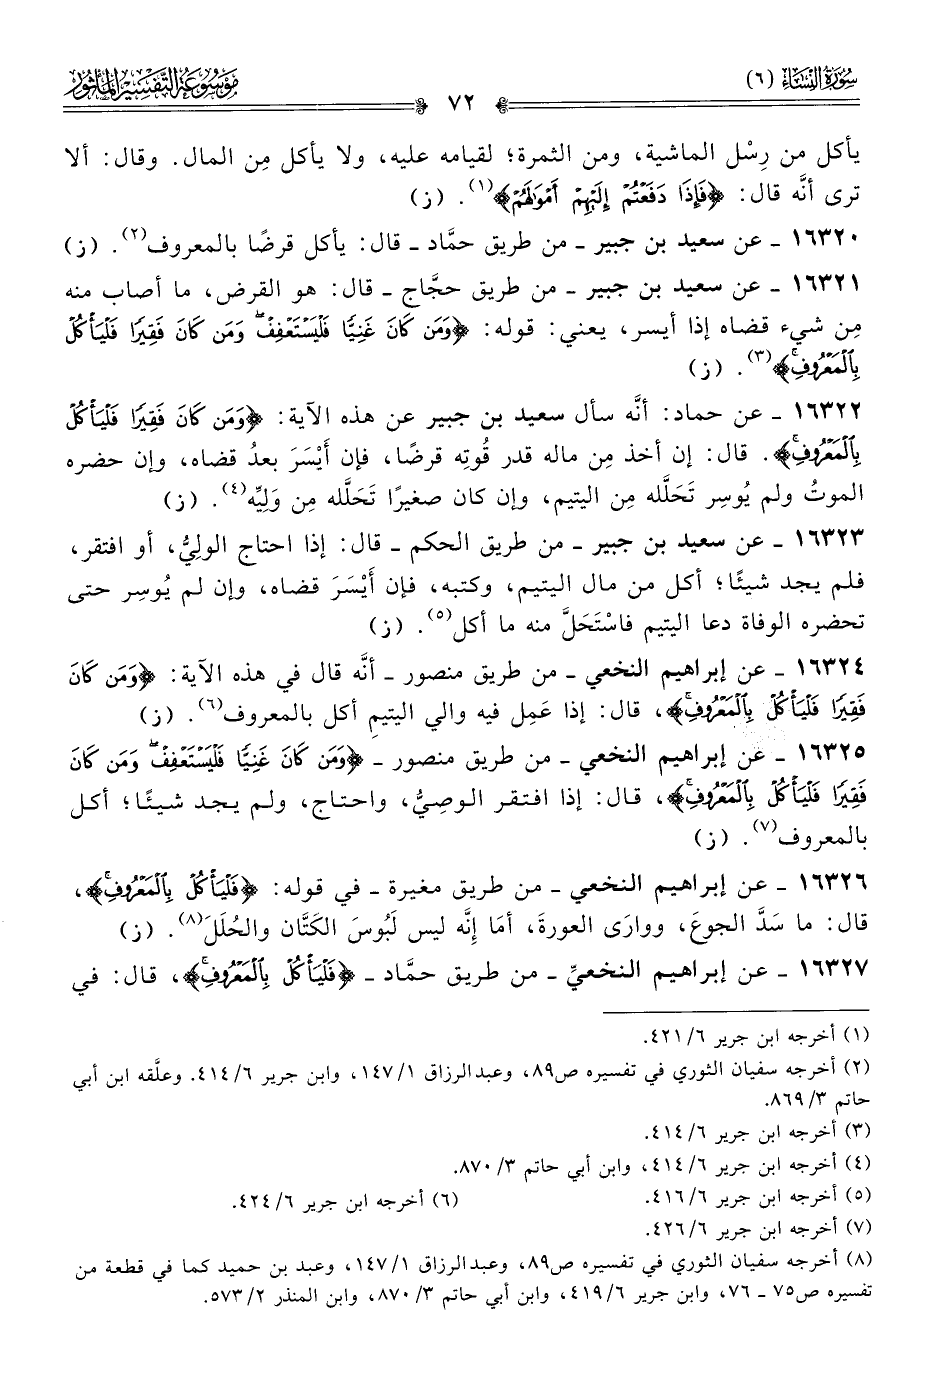 سُورَةُ النِّسَاءِ (٦)
٧٢
مَوْسُوعَةُ التَّفْسِيرِ المَأْثُورِ
يأكل من رِسْل الماشية، ومن الثمرة؛ لقيامه عليه، ولا يأكل مِن المال. وقال: ألا
ترى أنَّه قال: ﴿فَإِذَا دَفَعْتُمْ إِلَيْهِمْ أَمْوَالَهُمْ﴾(١). (ز)
١٦٣٢٠ ـ عن سعيد بن جبير ـ من طريق حمَّاد ـ قال: يأكل قرضًا بالمعروف(٢). (ز)
١٦٣٢١ ـ عن سعيد بن جبير ـ من طريق حجَّاج ـ قال: هو القرض، ما أصاب منه
مِن شيء قضاه إذا أيسر، يعني: قوله: ﴿وَمَن كَانَ غَنِيًّا فَلْيَسْتَعْفِفْ وَمَن كَانَ فَقِيرًا فَلْيَأْكُلْ
بِالْمَعْرُوفِ﴾(٣). (ز)
١٦٣٢٢ ـ عن حماد: أنَّه سأل سعيد بن جبير عن هذه الآية: ﴿وَمَن كَانَ فَقِيرًا فَلْيَأْكُلْ
بِالْمَعْرُوفِ﴾. قال: إن أخذ مِن ماله قدر قُوتِه قرضًا، فإن أَيْسَرَ بعدُ قضاه، وإن حضره
الموتُ ولم يُوسِر تَحَلَّله مِن اليتيم، وإن كان صغيرًا تَحَلَّله مِن وَلِيِّه(٤). (ز)
١٦٣٢٣ ـ عن سعيد بن جبير ـ من طريق الحكم ـ قال: إذا احتاج الولِيُّ، أو افتقر،
فلم يجد شيئًا؛ أكل من مال اليتيم، وكتبه، فإن أَيْسَرَ قضاه، وإن لم يُوسِر حتى
تحضره الوفاة دعا اليتيم فاسْتَحَلَّ منه ما أكل(٥). (ز)
١٦٣٢٤ ـ عن إبراهيم النخعي ـ من طريق منصور ـ أنَّه قال في هذه الآية: ﴿وَمَن كَانَ
فَقِيرًا فَلْيَأْكُلْ بِالْمَعْرُوفِ﴾، قال: إذا عَمِل فيه والي اليتيم أكل بالمعروف(٦). (ز)
١٦٣٢٥ ـ عن إبراهيم النخعي ـ من طريق منصور ـ ﴿وَمَن كَانَ غَنِيًّا فَلْيَسْتَعْفِفْ وَمَن كَانَ
فَقِيرًا فَلْيَأْكُلْ بِالْمَعْرُوفِ﴾، قال: إذا افتقر الوصِيُّ، واحتاج، ولم يجد شيئًا؛ أكل
بالمعروف(٧). (ز)
١٦٣٢٦ ـ عن إبراهيم النخعي ـ من طريق مغيرة ـ في قوله: ﴿فَلْيَأْكُلْ بِالْمَعْرُوفِ﴾،
قال: ما سَدَّ الجوعَ، ووارَى العورةَ، أمَا إِنَّه ليس لَبُوسَ الكَتَّان والحُلَلَ(٨). (ز)
١٦٣٢٧ ـ عن إبراهيم النخعيِّ ـ من طريق حمَّاد ـ ﴿فَلْيَأْكُلْ بِالْمَعْرُوفِ﴾، قال: في
(١) أخرجه ابن جرير ٦/ ٤٢١.
(٢) أخرجه سفيان الثوري في تفسيره ص٨٩، وعبدالرزاق ١/ ١٤٧، وابن جرير ٦/ ٤١٤. وعلَّقه ابن أبي
حاتم ٣/ ٨٦٩.
(٣) أخرجه ابن جرير ٦/ ٤١٤.
(٤) أخرجه ابن جرير ٦/ ٤١٤، وابن أبي حاتم ٣/ ٨٧٠.
(٥) أخرجه ابن جرير ٦/ ٤١٦. (٦) أخرجه ابن جرير ٦/ ٤٢٤.
(٧) أخرجه ابن جرير ٦/ ٤٢٦.
(٨) أخرجه سفيان الثوري في تفسيره ص٨٩، وعبدالرزاق ١/ ١٤٧، وعبد بن حميد كما في قطعة من
تفسيره ص٧٥ ـ ٧٦، وابن جرير ٦/ ٤١٩، وابن أبي حاتم ٣/ ٨٧٠، وابن المنذر ٢/ ٥٧٣.